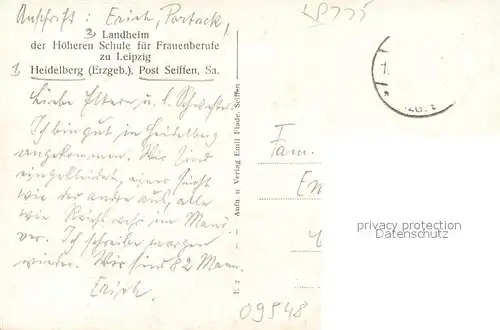 Anschrift: Erich, Portack,
3 Landheim
der Höheren Schule für Frauenberufe
zu Leipzig
1 Heidelberg (Erzgeb.), Post Seiffen, Sa.
Liebe Eltern u. l. Schwester.
Ich bin gut in Heidelberg
angekommen. Wir sind
eingekleidet, einer sieht
wie der andere aus, alle
wie Reichswehr im Manö-
ver. Ich schreibe morgen
wieder. Wir sind 82 Mann.
Erich.
Aufn. u Verlag Emil Flade, Seiffen
Fam.
09548
privacy protection
Datenschutz